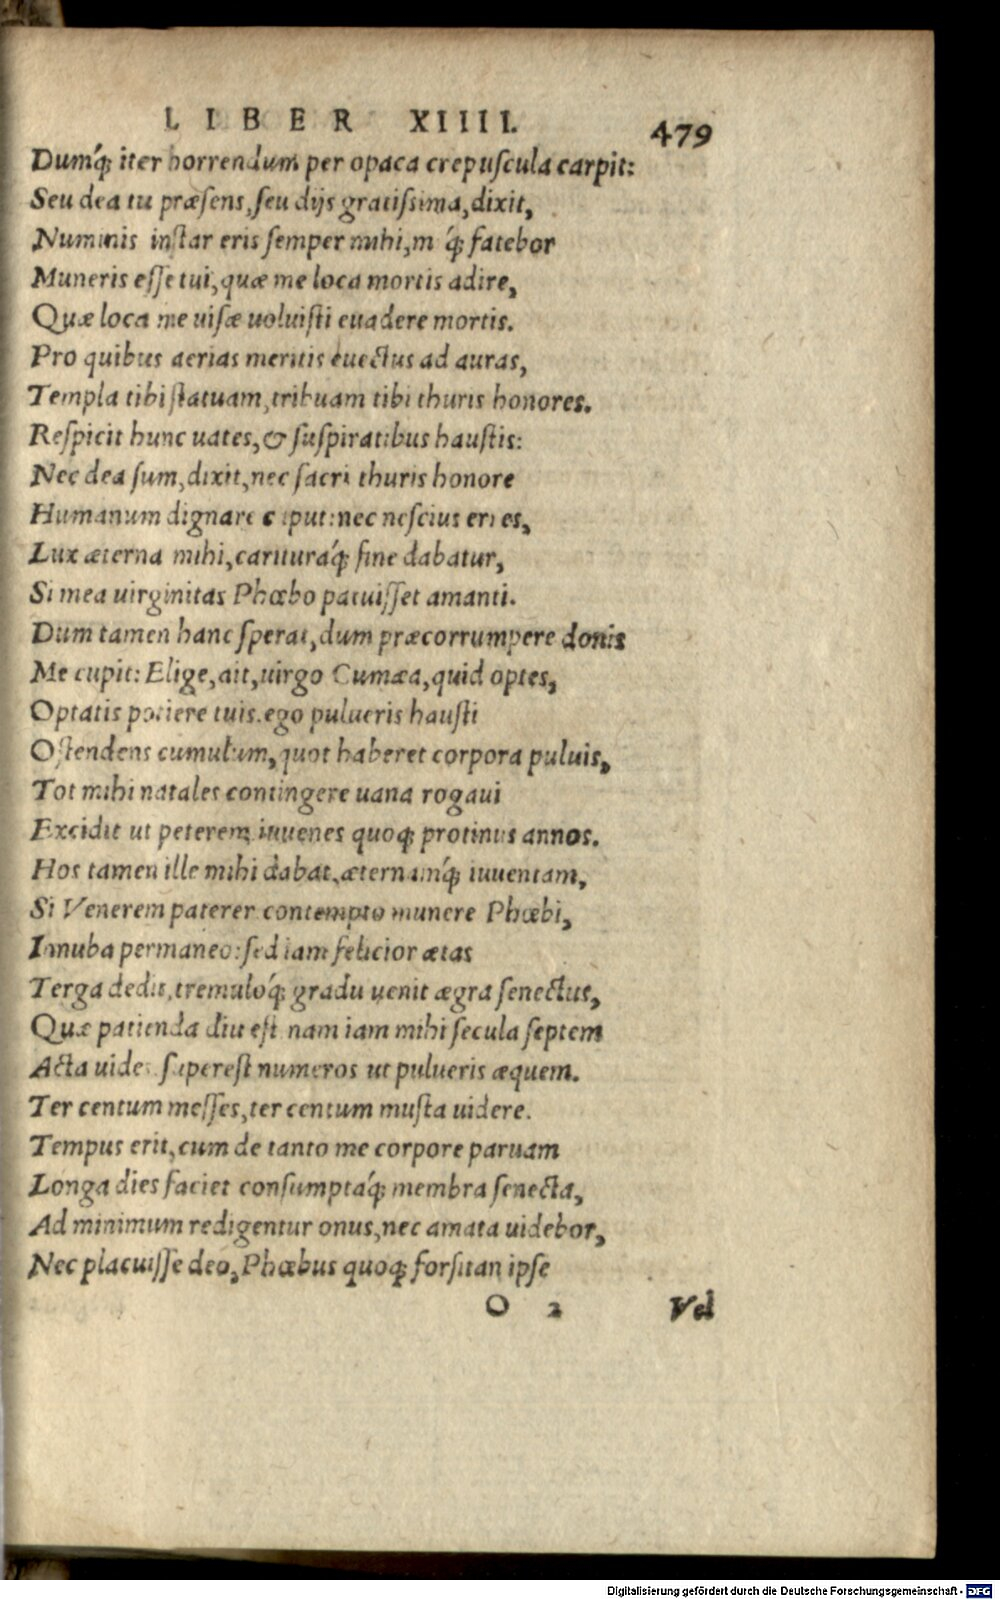 LIBER XIIII. 479
Dumq́; iter horrendum per opaca crepuſcula carpit:
Seu dea tu præſens, ſeu dijs gratiſsima, dixit,
Numinis inſtar eris ſemper mihi, m q́; fatebor
Muneris eſſe tui, quæ me loca mortis adire,
Quæ loca me uiſæ uoluiſti euadere mortis.
Pro quibus aerias meritis euectus ad auras,
Templa tibi ſtatuam, tribuam tibi thuris honores.
Reſpicit hunc uates, & ſuſpiratibus hauſtis:
Nec dea ſum, dixit, nec ſacri thuris honore
Humanum dignare caput: nec neſcius erres,
Lux æterna mihi, carituraq́; fine dabatur,
Si mea uirginitas Phœbo patuiſſet amanti.
Dum tamen hanc ſperat, dum præcorrumpere donis
Me cupit: Elige, ait, uirgo Cumæa, quid optes,
Optatis potiere tuis. ego pulueris hauſti
Oſtendens cumulum, quot haberet corpora puluis,
Tot mihi natales contingere uana rogaui
Excidit ut peterem iuuenes quoq; protinus annos.
Hos tamen ille mihi dabat, æternamq́; iuuentam,
Si Venerem paterer contempto munere Phœbi,
Innuba permaneo: ſed iam felicior ætas
Terga dedit, tremuloq́; gradu uenit ægra ſenectus,
Quæ patienda diu eſt nam iam mihi ſecula ſeptem
Acta uides ſupereſt numeros ut pulueris æquem.
Ter centum meſſes, ter centum muſta uidere.
Tempus erit, cum de tanto me corpore paruam
Longa dies faciet conſumptaq́; membra ſenecta,
Ad minimum redigentur onus, nec amata uidebor,
Nec placuiſſe deo, Phœbus quoq; forſitan ipſe
O 2 Vel
Digitalisierung gefördert durch die Deutsche Forschungsgemeinschaft - DFG